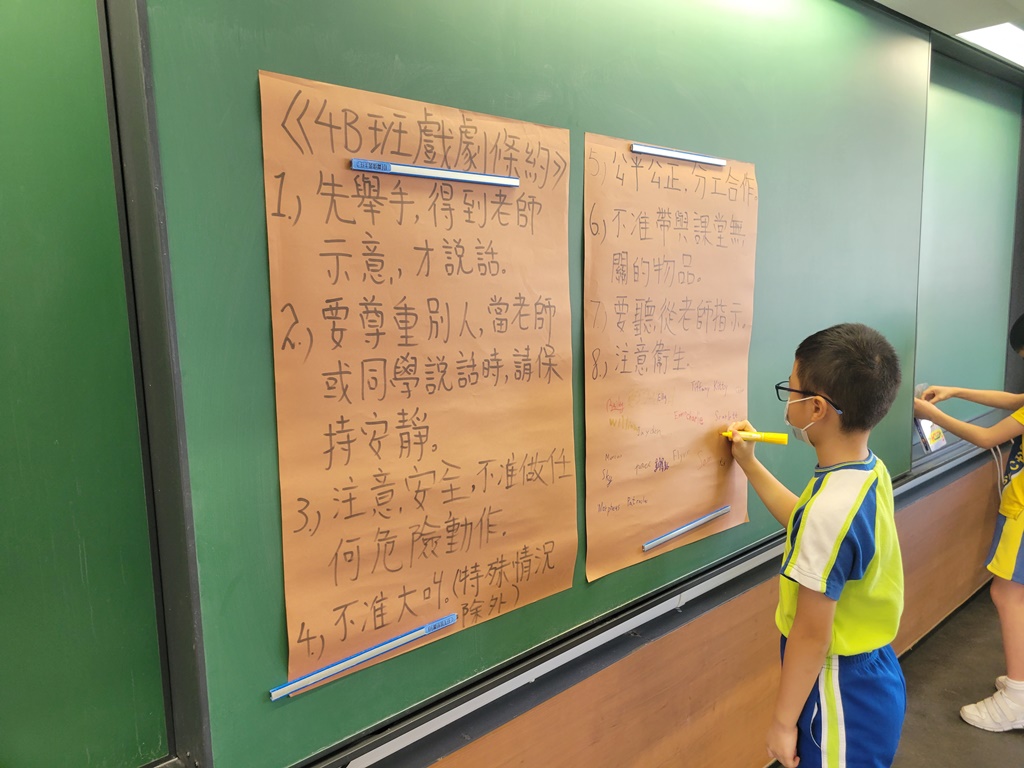 《4B班戲劇條約》
1.) 先舉手，得到老師
示意，才說話。
2.) 要尊重別人，當老師
或同學說話時，請保
持安靜。
3.) 注意安全，不准做任
何危險動作。
4.) 不准大叫。(特殊情況
除外)
5.) 公平公正，分工合作。
6.) 不准帶與課堂無
關的物品。
7.) 要聽從老師指示。
8.) 注意衛生。
Marcus
Sky